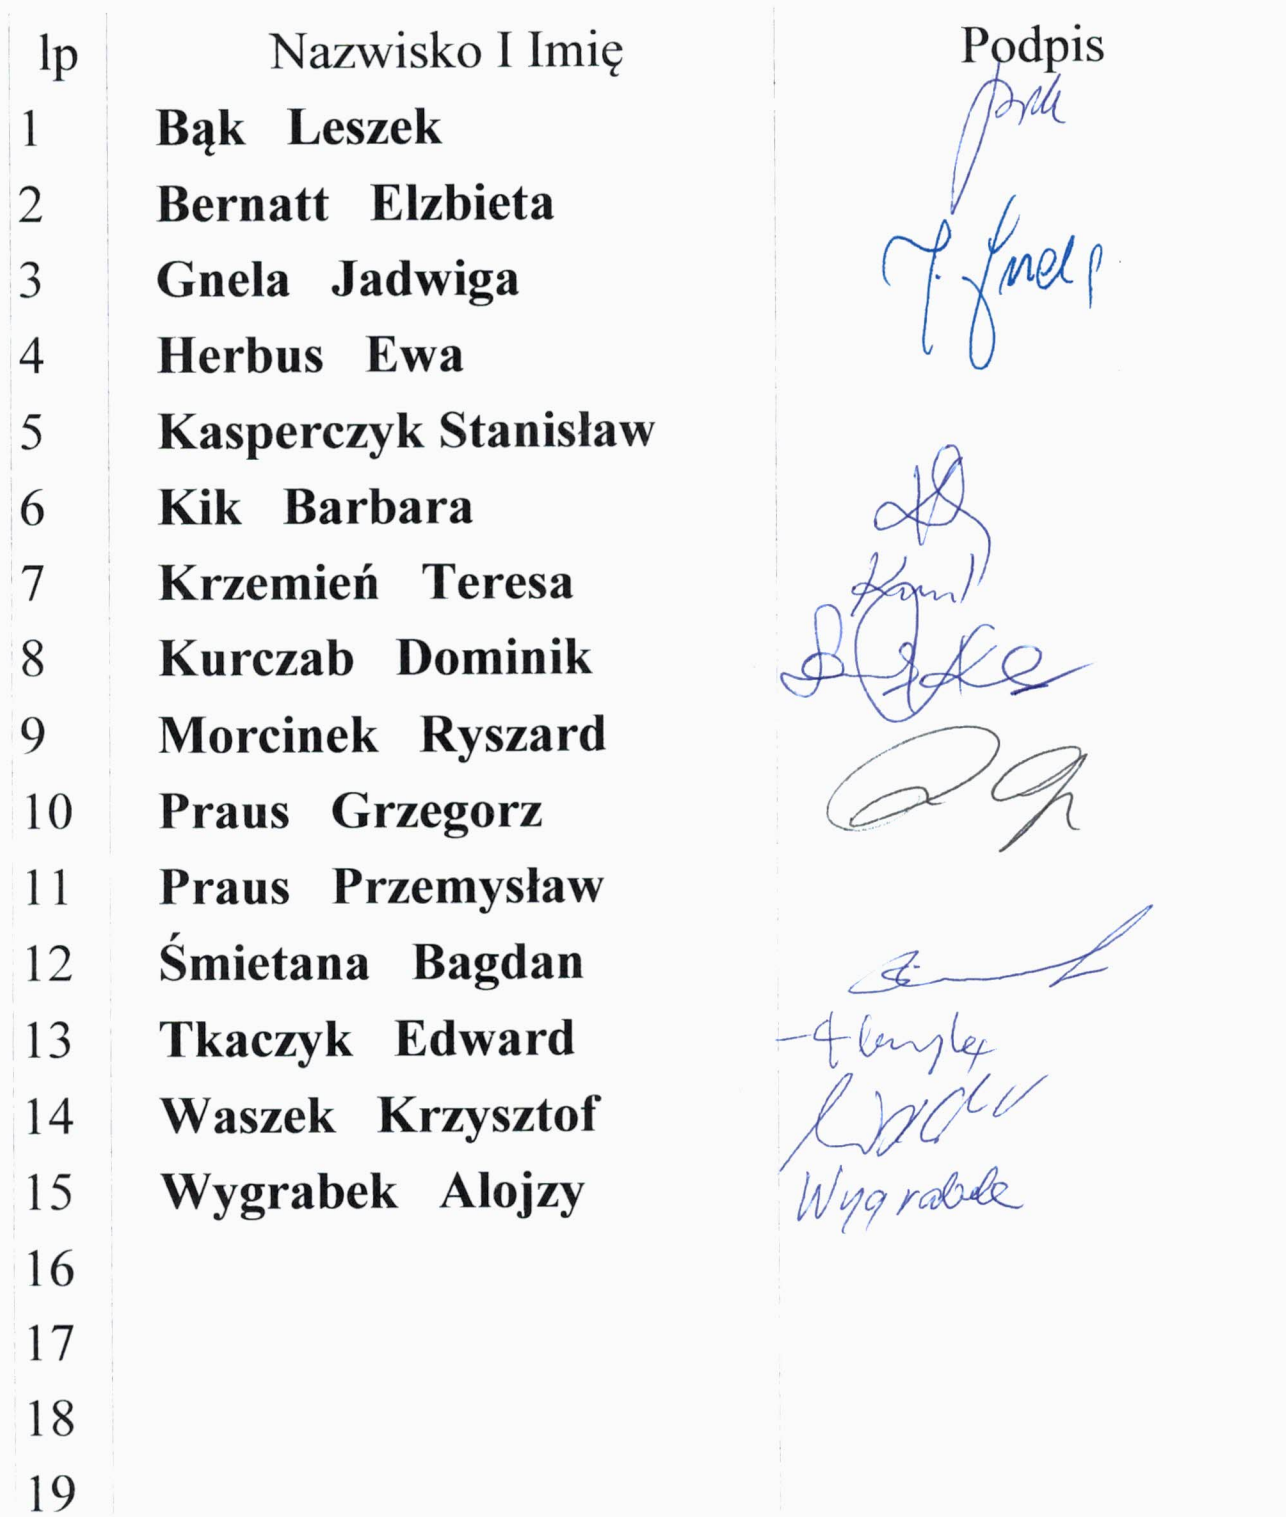 lp Nazwisko I Imię Podpis
1 Bąk Leszek
2 Bernatt Elzbieta
3 Gnela Jadwiga J. Gnela
4 Herbus Ewa
5 Kasperczyk Stanisław
6 Kik Barbara
7 Krzemień Teresa
8 Kurczab Dominik
9 Morcinek Ryszard
10 Praus Grzegorz
11 Praus Przemysław
12 Śmietana Bagdan
13 Tkaczyk Edward
14 Waszek Krzysztof
15 Wygrabek Alojzy Wygrabek
16
17
18
19